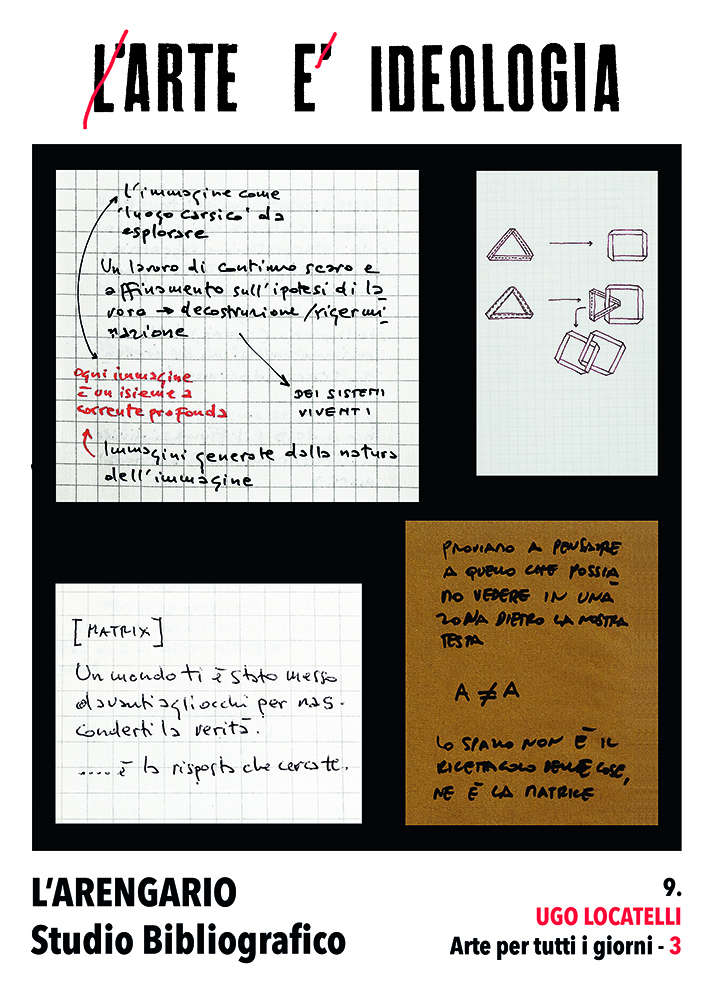 L'ARTE E' IDEOLOGIA
l'immagine come
'luogo carsico' da
esplorare
Un lavoro di continuo scavo e
affinamento sull'ipotesi di la
voro → decostruzione/rigermi
nazione
DEI SISTEMI
VIVENTI
ogni immagine
è un isieme a
corrente profonda
Immagini generate dalla natura
dell'immagine
PROVIAMO A PENSARE
A QUELLO CHE POSSIA
MO VEDERE IN UNA
ZONA DIETRO LA NOSTRA
TESTA
A ≠ A
LO SPAZIO NON È IL
RICETTACOLO DELLE COSE,
NE È LA MATRICE
[MATRIX]
Un mondo ti è stato messo
davanti agli occhi per nas-
conderti la verità.
..... è la risposta che cercate.
L'ARENGARIO
Studio Bibliografico
9.
UGO LOCATELLI
Arte per tutti i giorni - 3